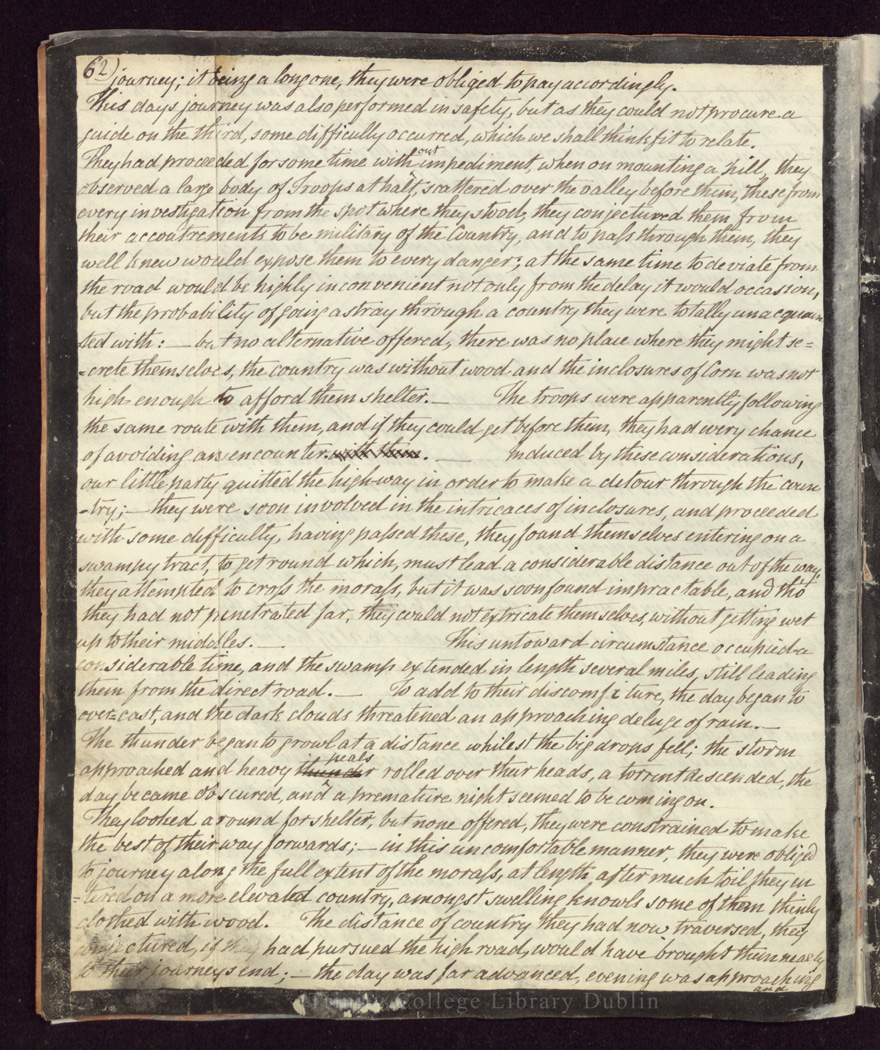 62) journey; it being a long one, they were obliged to pay accordingly.
This days journey was also performed in safety, but as they could not procure a
guide on the third, some difficulty occurred, which we shall think fit to relate.
They had proceeded for some time without impediment, when on mounting a hill, they
observed a large body of Troops at halt, scattered over the valley before them, these from
every investigation from the spot where they stood, they conjectured them from
their accoutrements to be military of the Country, and to pass through them, they
well knew would expose them to every danger; at the same time to deviate from
the road would be highly inconvenient not only from the delay it would occasion,
but the probability of going astray through a country they were totally unacquain
ted with: — but no alternative offered, there was no place where they might se=
=crete themselves, the country was without wood and the inclosures of Corn was not
high=enough to afford them shelter. — The troops were apparently following
the same route with them, and if they could get before them, they had every chance
of avoiding an encounter with them. — Induced by these considerations,
our little party quitted the high-way in order to make a detour through the coun
-try; — they were soon involved in the intricaces of inclosures, and proceeded
with some difficulty, having passed these, they found themselves entering on a
swampy tract, to get round which, must lead a considerable distance out of the way,
they attempted to cross the morass, but it was soon found impractable, and tho'
they had not penetrated far, they could not extricate themselves, without getting wet
up to their middles. — This untoward circumstance occupied a
considerable time, and the swamp extended in length several miles, still leading
them from the direct road. — To add to their discomfiture, the day began to
over=cast, and the dark clouds threatened an approaching deluge of rain. —
The thunder began to growl at a distance whilest the big drops fell; the storm
approached and heavy thunder peals rolled over their heads, a torrent descended, the
day became obscured, and a premature night seemed to be coming on.
They looked around for shelter, but none offered, they were constrained to make
the best of their way forwards; — in this uncomfortable manner, they were obliged
to journey along the full extent of the morass, at length after much toil they en
=tered on a more elevated country, amongst swelling knowls some of them thinly
clothed with wood. The distance of country they had now traversed, they
conjectured, if they had pursued the high road, would have brought them nearly
to their journeys end; — the day was far advanced, evening was approaching
and
Trinity College Library Dublin